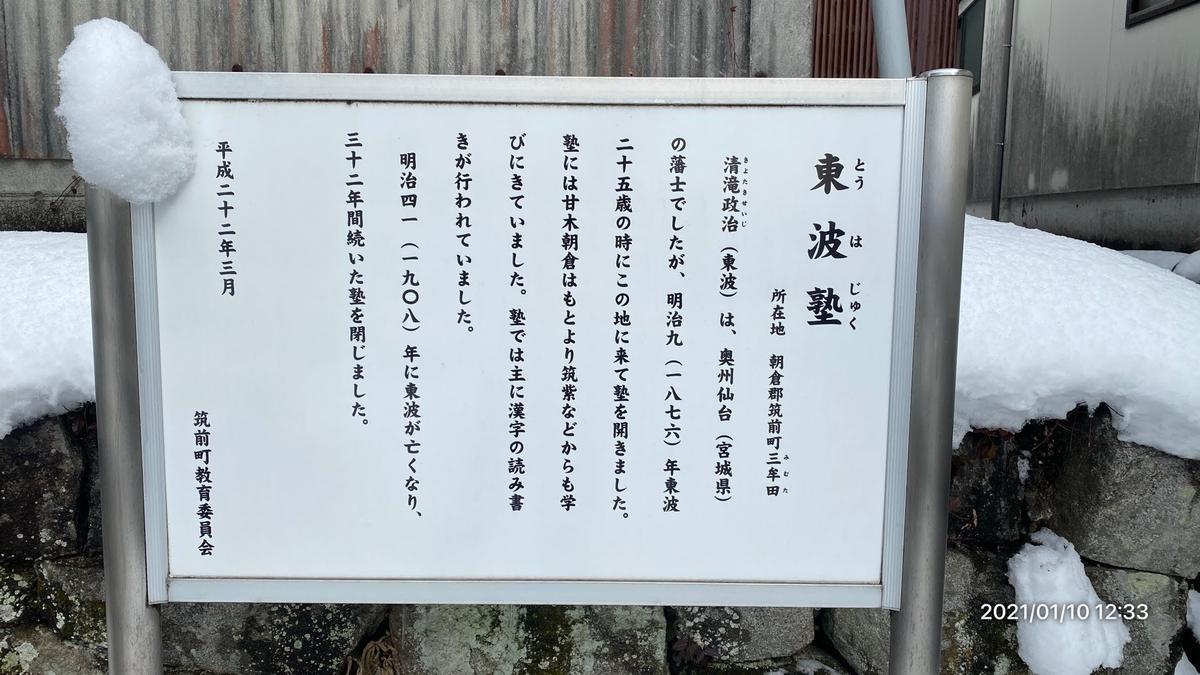 東波塾
とうはじゅく
所在地 朝倉郡筑前町三牟田
みむた
清滝政治（東波）は、奥州仙台（宮城県）
きよたきせいじ
の藩士でしたが、明治九（一八七六）年東波
二十五歳の時にこの地に来て塾を開きました。
塾には甘木朝倉はもとより筑紫などからも学
びにきていました。塾では主に漢字の読み書
きが行われていました。
明治四一（一九〇八）年に東波が亡くなり、
三十二年間続いた塾を閉じました。
平成二十二年三月
筑前町教育委員会
2021/01/10 12:33